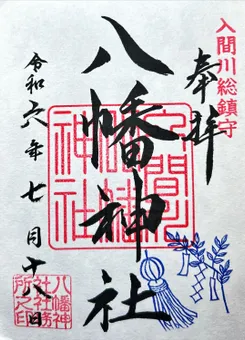 入間川総鎮守
奉拝
八幡神社
令和六年七月十八日
入間川
八幡
神社
八幡神
社社務
所之印